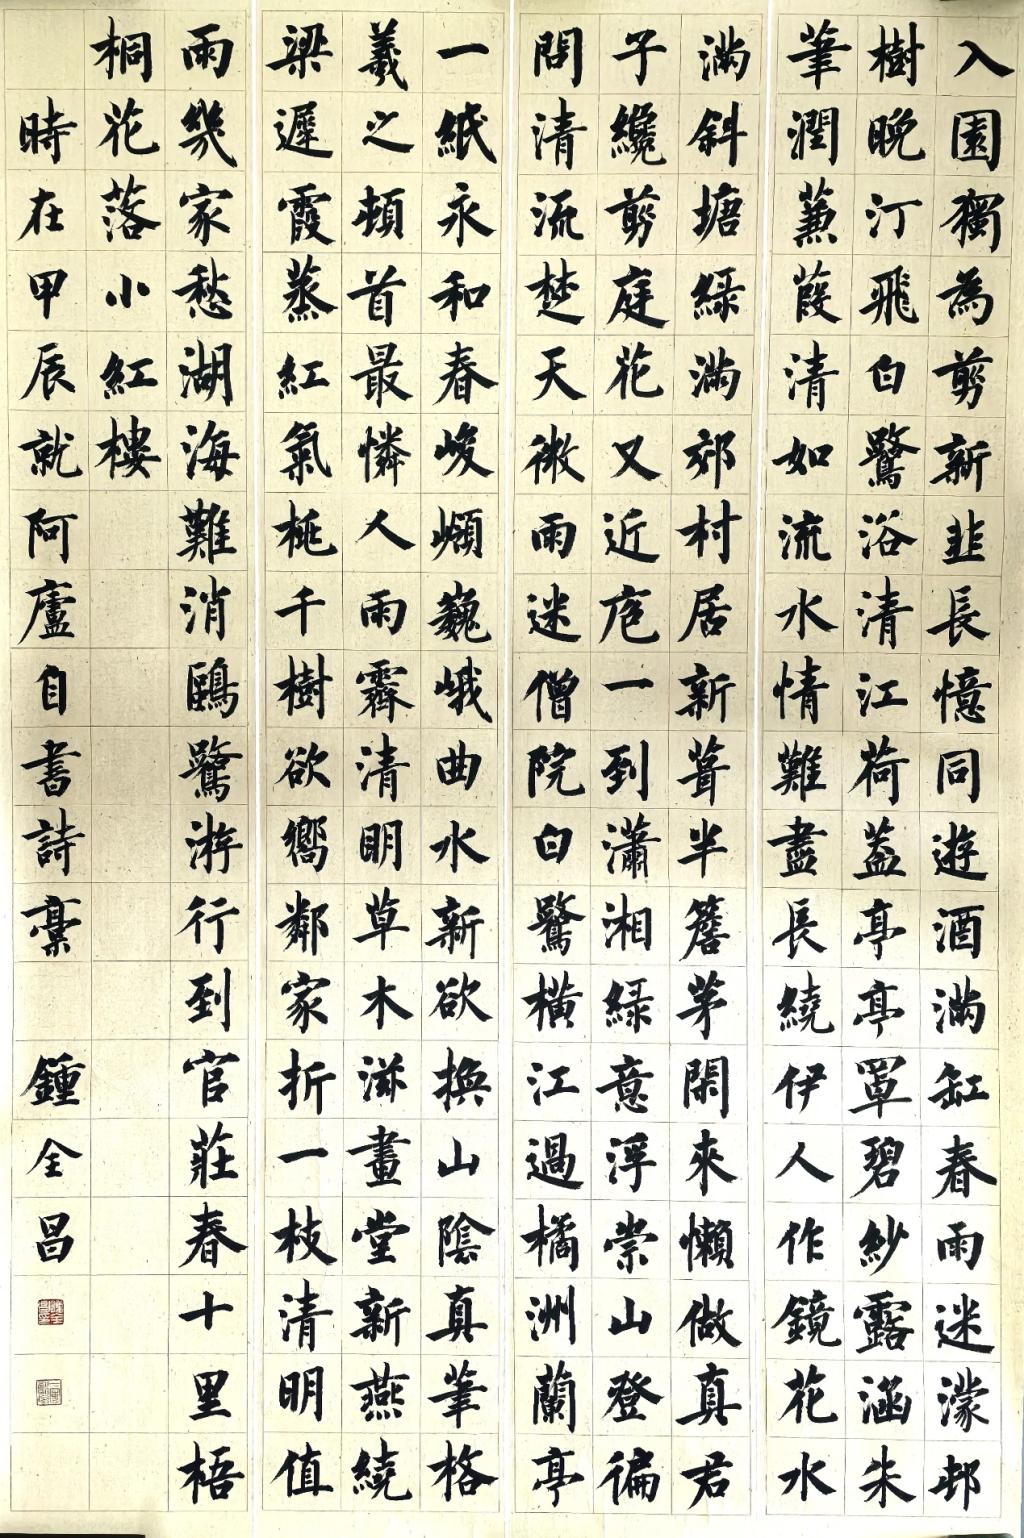 入園獨為剪新韭長憶同遊酒滿缸春雨迷濛邨
樹晚汀飛白鷺浴清江荷蓋亭亭罩碧紗露涵朱
筆潤蒹葭清如流水情難盡長繞伊人作鏡花水
滿斜塘綠滿郊村居新葺半簷茅閑來懶做真君
子纔剪庭花又近庖一到瀟湘綠意浮崇山登徧
問清流楚天微雨迷僧院白鷺橫江過橘洲蘭亭
一紙永和春峻嶺巍峨曲水新欲換山陰真筆格
羲之頓首最憐人雨霽清明草木滋畫堂新燕繞
梁遲霞蒸紅氣桃千樹欲嚮鄰家折一枝清明值
雨幾家愁湖海難消鷗鷺游行到官莊春十里梧
桐花落小紅樓
時在甲辰就阿廬自書詩稾 鍾全昌